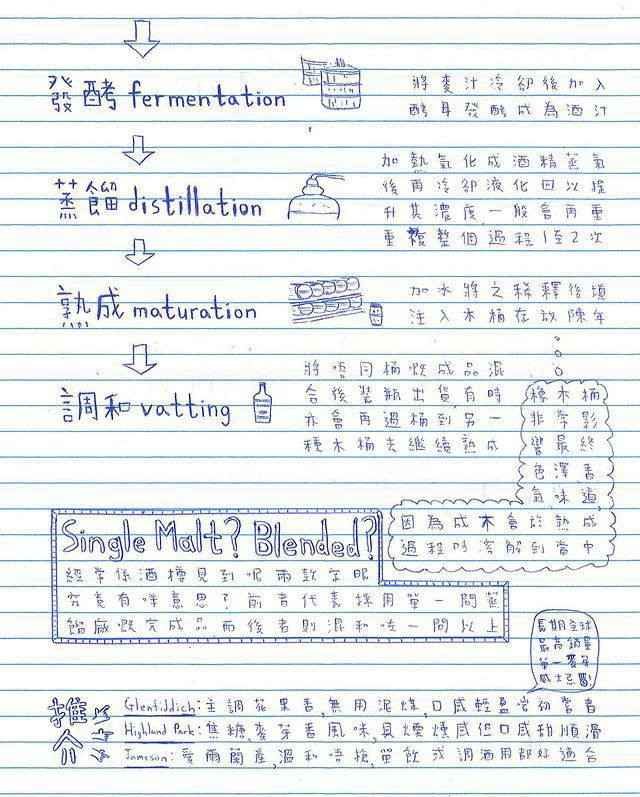 發酵 fermentation
將麥汁冷卻後加入
酵母發酵成為酒汁
蒸餾 distillation
加熱氣化成酒精蒸氣
後再冷卻液化回以提
升其濃度,一般會再重
重複整個過程1至2次
熟成 maturation
加水將之稀釋後填
注入木桶存放陳年
調和 vatting
將唔同桶嘅成品混
合後裝瓶出貨,有時
亦會再過桶到另一
種木桶去繼續熟成
橡木桶
非常影
響最終
色澤,香
氣,味道,
因為成木會於熟成
過程時溶解到當中
Single Malt? Blended?
經常係酒樽見到呢兩款字眼
究竟有咩意思?前者代表採用單一間蒸
餾廠嘅完成品,而後者則混和咗一間以上
長期全球
最高銷量
單一麥芽
威士忌
推介
Glenfiddich:主調花果香,無用泥煤,口感輕盈
Highland Park:焦糖,麥芽香風味,具煙燻感但口感甜順滑
Jameson:愛爾蘭產,溫和唔搶,單飲或調酒用都好適合